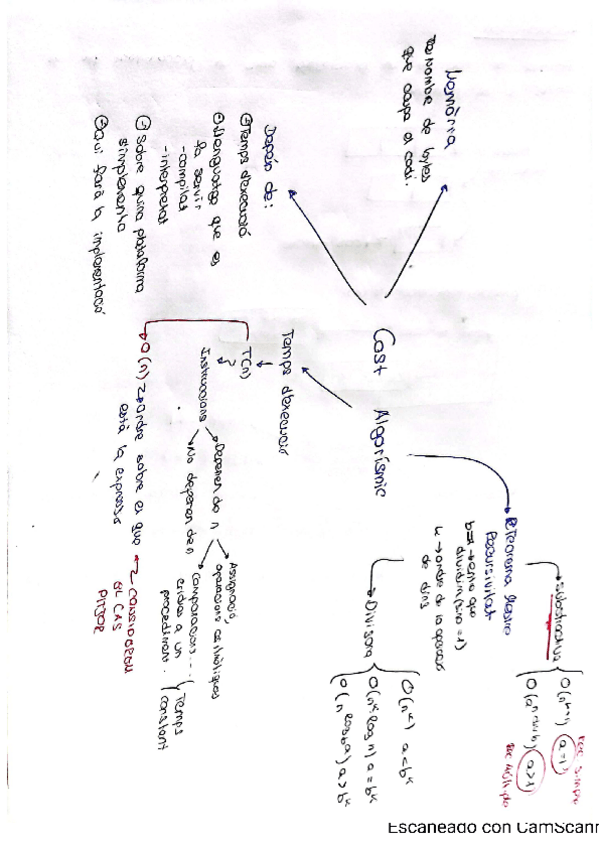 Cost Algorísmic
Memòria
Nombre de bytes
que ocupa el codi.
Depèn de:
Temps d'execució
Llenguatge que es
fa servir
-compilat
-interpretat
Sobre quina plataforma
s'implementa
Qui farà la implementació
Temps d'execució
T(n)
Instruccions
Depenen de n
No depenen de n
Assignació,
operacions aritmètiques
comparacions...
crides a un
procediment.
Temps
constant
O(n)
Ordre sobre el que
està la expressió
CONSIDEREM
EL CAS
PITJOR
Teorema Mestre
Recursivitat
dividim (sino = 1)
k → ordre de la operació
de dins
Substractiva
O(n^k+1) a=1
Rec. Simple
a>1
Rec Múltiple
Divisora
O(n^k) a<b^k
O(n^k log n) a=b^k
O(n^log_b a) a>b^k
Escaneado con CamScann